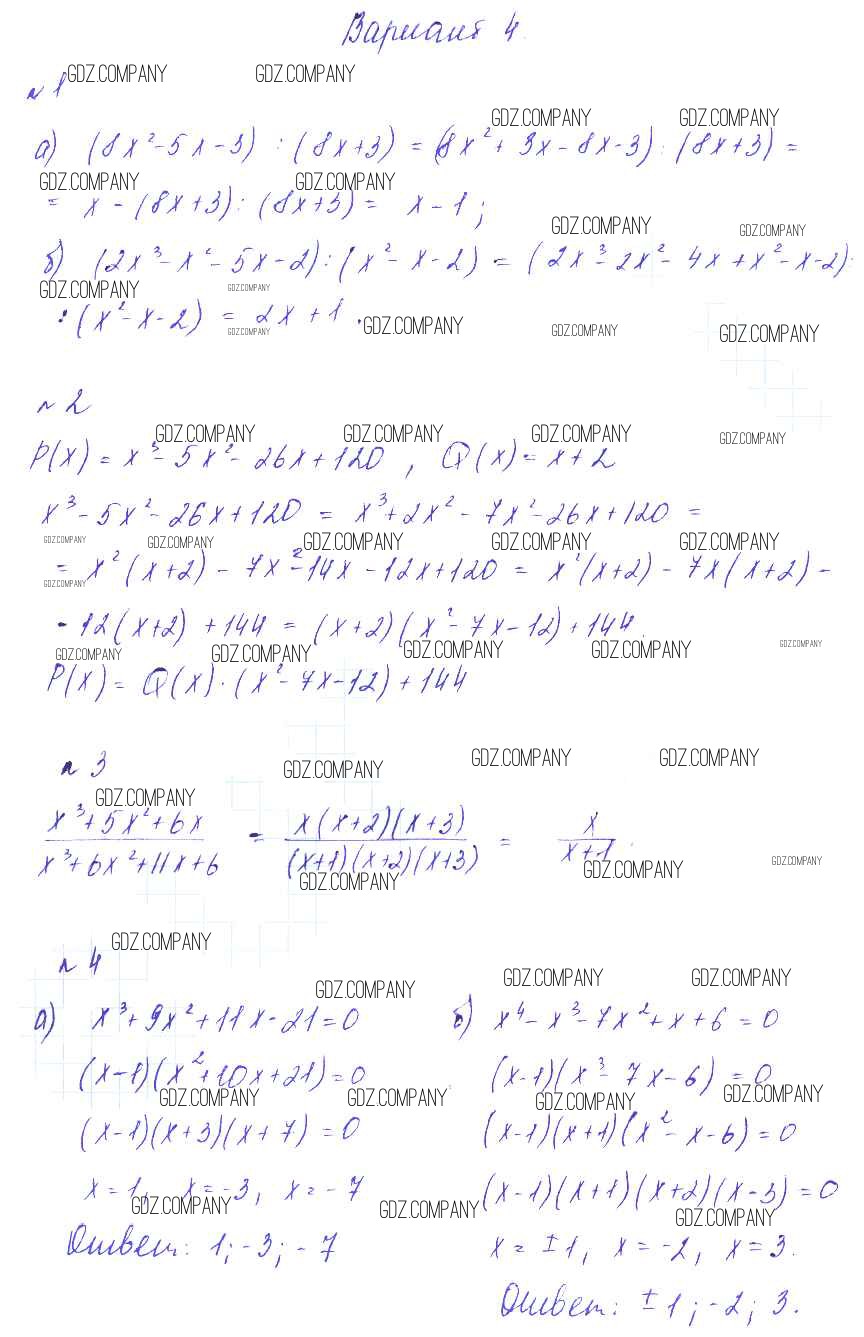 Вариант 4.
№1 GDZ.COMPANY GDZ.COMPANY
GDZ.COMPANY GDZ.COMPANY
а) (8x²-5x-3) : (8x+3) = (8x²+3x-8x-3) : (8x+3) =
GDZ.COMPANY GDZ.COMPANY
= x - (8x+3) : (8x+3) = x-1;
GDZ.COMPANY GDZ.COMPANY
б) (2x³-x²-5x-2) : (x²-x-2) = (2x³-2x²-4x+x²-x-2) :
GDZ.COMPANY GDZ.COMPANY
: (x²-x-2) = 2x+1.
GDZ.COMPANY GDZ.COMPANY GDZ.COMPANY GDZ.COMPANY
№2
GDZ.COMPANY GDZ.COMPANY GDZ.COMPANY GDZ.COMPANY
P(x) = x³-5x²-26x+120, Q(x) = x+2
x³-5x²-26x+120 = x³+2x²-7x²-26x+120 =
GDZ.COMPANY GDZ.COMPANY GDZ.COMPANY GDZ.COMPANY GDZ.COMPANY
= x²(x+2) - 7x²-14x-12x+120 = x²(x+2) - 7x(x+2) -
GDZ.COMPANY
- 12(x+2) + 144 = (x+2)(x²-7x-12) + 144.
GDZ.COMPANY GDZ.COMPANY GDZ.COMPANY GDZ.COMPANY GDZ.COMPANY
P(x) = Q(x)·(x²-7x-12) + 144
№3 GDZ.COMPANY GDZ.COMPANY GDZ.COMPANY
GDZ.COMPANY
x³+5x²+6x / x³+6x²+11x+6 = x(x+2)(x+3) / (x+1)(x+2)(x+3) = x / x+1.
GDZ.COMPANY GDZ.COMPANY GDZ.COMPANY
GDZ.COMPANY
№4
GDZ.COMPANY GDZ.COMPANY GDZ.COMPANY
а) x³+9x²+11x-21=0
(x-1)(x²+10x+21)=0
GDZ.COMPANY GDZ.COMPANY
(x-1)(x+3)(x+7)=0
x=1, x=-3, x=-7
GDZ.COMPANY GDZ.COMPANY
Ответ: 1; -3; -7
б) x⁴-x³-7x²+x+6=0
(x-1)(x³-7x-6)=0
GDZ.COMPANY GDZ.COMPANY
(x-1)(x+1)(x²-x-6)=0
(x-1)(x+1)(x+2)(x-3)=0
GDZ.COMPANY
x=±1, x=-2, x=3.
Ответ: ±1; -2; 3.